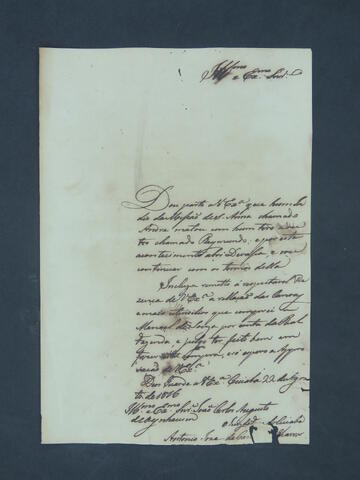 Illmo e Exmo Snr.
Dou parte a V Exª que hum In
dio da Missão de S. Anna chamado
André matou com hum tiro a ou
tro chamado Raymundo; e por este
acontecimento abri Devassa, e vou
continuar com os termos della
Incluza remeto á respeitavel Pre
zença de V Exª a rellação das
e mais utencilios que comprei a
Manoel de Souza por conta da Real
Fazenda, e julgo ter feito bem em
compra, e só espero a Appro
vação de V Exª
Deos Guarde a V Exª Cuiabá 22 de Agos
to de 1816
Illmo e Exmo Snr. João Carlos Augusto
de Oyenhausen
O
Antonio Joze de